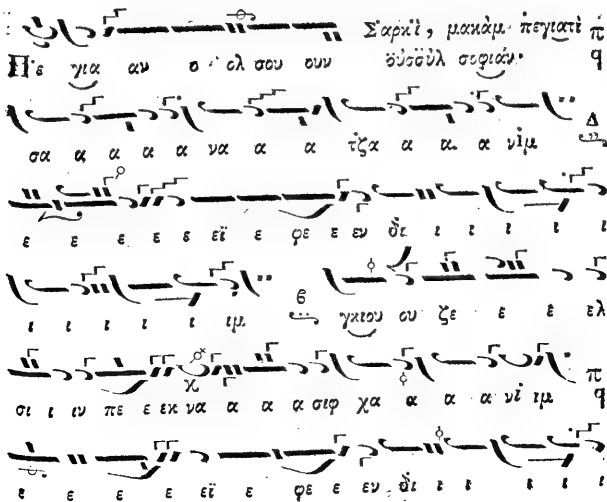 Σαρκὶ, μακὰμ πεγιατὶ π
Πε για αν ο ολ σου ουν οὐσοὺλ σοφιάν· q
Δ
σα α α α α να α α τζα α α α νὶμ
ε ε ε ε ε εϊ ε φε ε εν δι ι ι ι ι ι
ι ι ι ι ι ιμ β γκιου ου ζε ε ε ε ελ
σι ι ιν πε ε εκ να α α α α σιφ χα α α α νὶ ιμ π q
ε ε ε ε εϊ ε φε ε εν δι ι ι ι ι ι